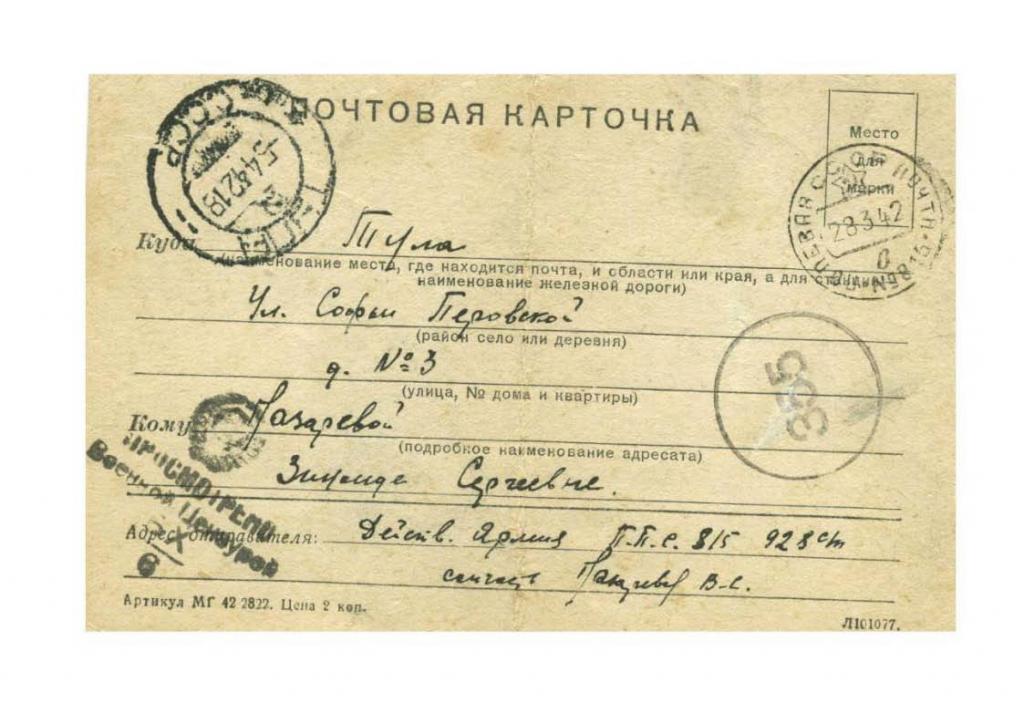 ПОЧТОВАЯ КАРТОЧКА
Место
для
марки
СССР
5.4.42.18
ТУЛА
ПОЛЕВАЯ
СССР
ПОЧТА
28.3.42
№815
Куда Тула
(наименование места, где находится почта, и области или края, а для станции
наименование железной дороги)
Ул. Софьи Перовской
(район село или деревня)
д. № 3
(улица, № дома и квартиры)
355
Кому Назаревой
(подробное наименование адресата)
Зинаиде Сергеевне.
ПРОСМОТРЕНО
Военной Цензурой
6
Адрес отправителя: Действ. Армия П.П.С. 815 928
Назарев В.С.
Артикул МГ 42 2822. Цена 2 коп.
Л101077.